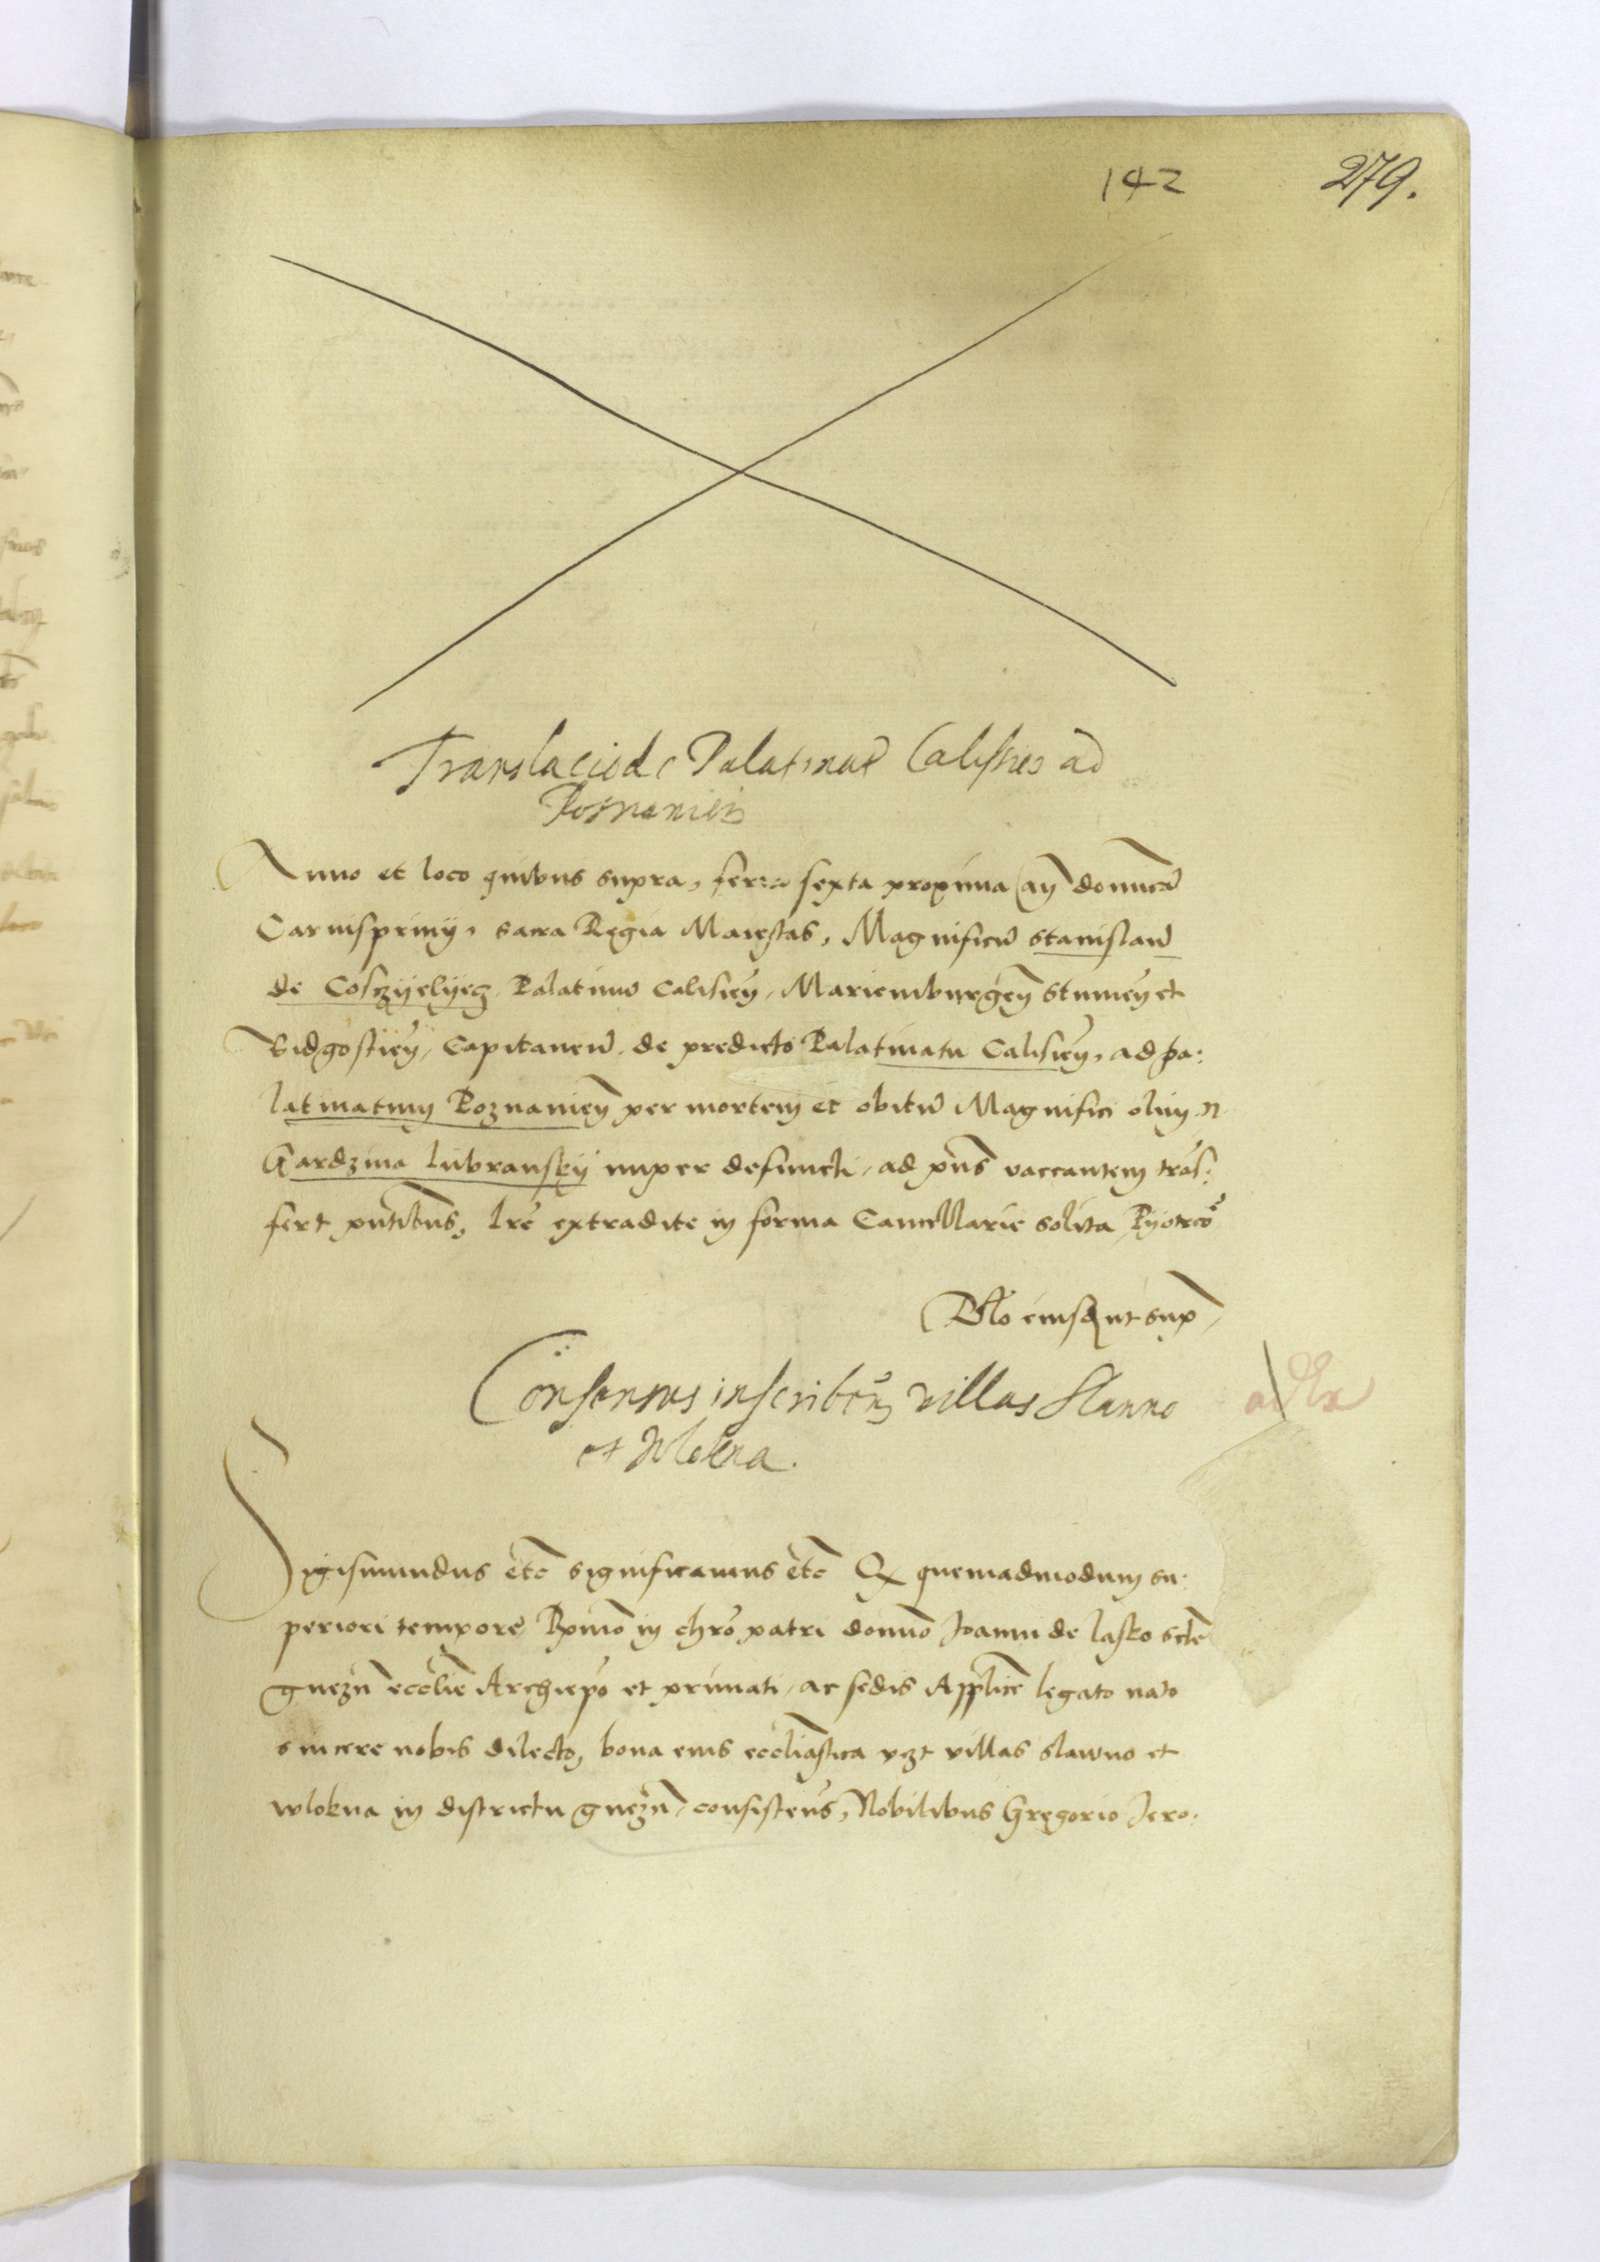 142 279.
Translacio de Palatinatu Calisien ad
Posnanien
Anno et loco quibus supra, feria sexta proxima an dominicā
Carnisprivij, sacra Regia Maiestas, Magnificū Stanislaū
de Cosczyelyecz Palatinū Calisień, Marienburgeń Stumeń et
Bidgostień, Capitaneū, de predicto Palatinatu Calisień, ad pa:
latinatum Poznanień per mortem et obitū Magnifici olim N
Gardzina Lubransky nuper defuncti, ad pn̄s vaccantem trās:
fert pn̄tibus, lr̄e extradite in forma Cancellarie solita Pyotrcō
Rlo eiusd ut sup
Consensus inscribēn villas Slauno
et Wlokna.
Sigismundus etc̄ significamus etc̄ Q quemadmodum su:
periori tempore Rmō in chrō patri domīo Joanni de Lasko sctē
gnezn̄ eccliē Archiepō et primati, ac sedis Applicē legato nato
sincere nobis dilecto, bona eius eccliastica vzt villas Slawno et
Wlokna in districtu gnezn̄, consisteñs, Nobilibus Gregorio Jero: